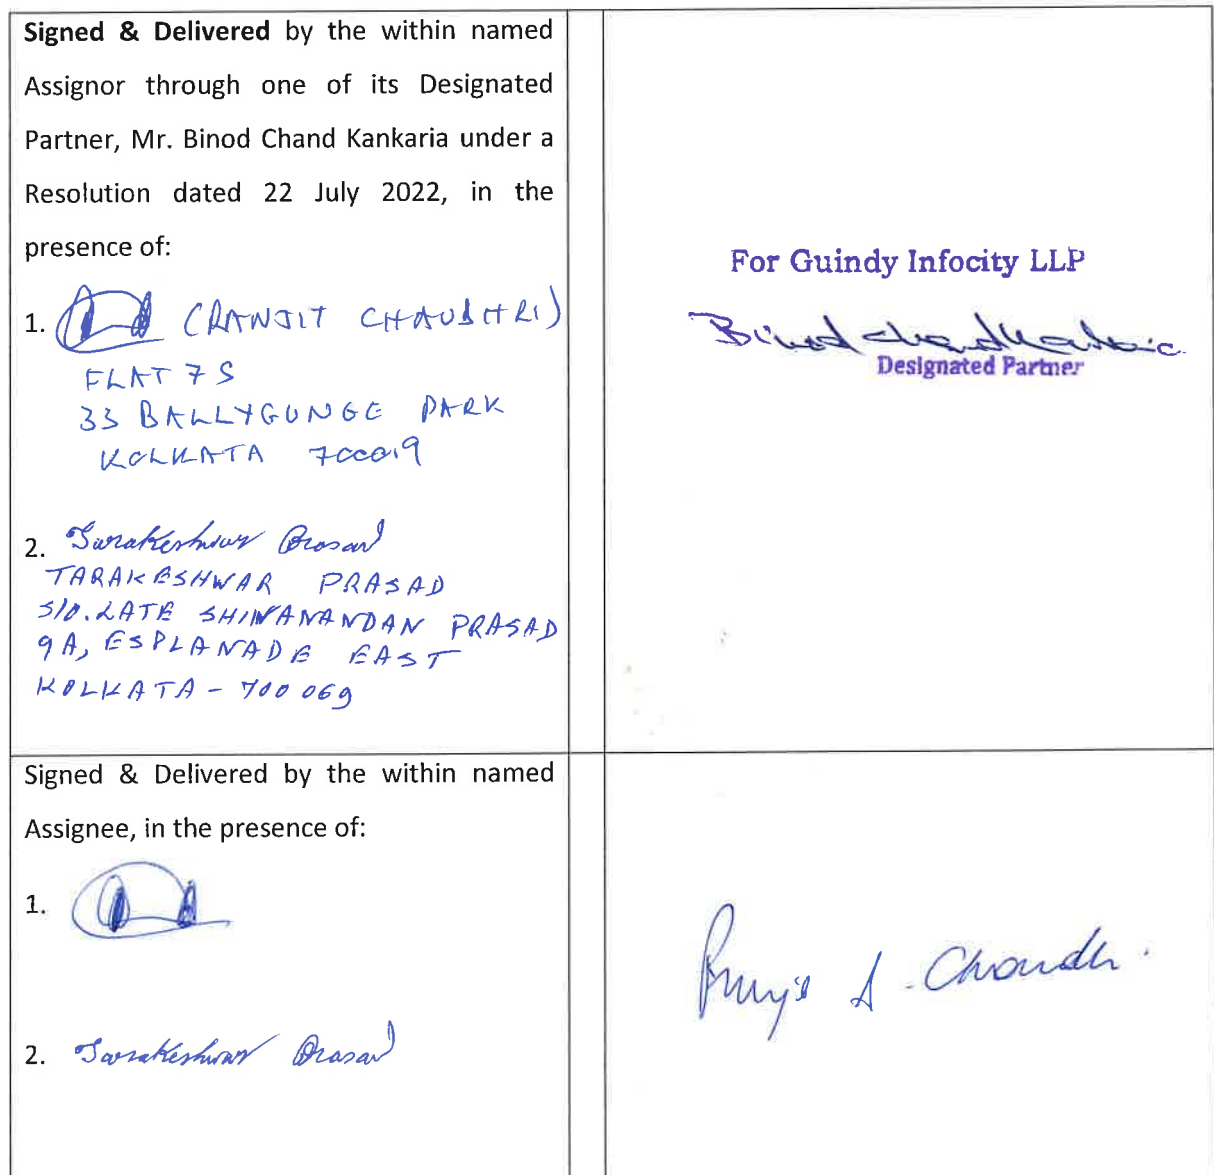 Signed & Delivered by the within named
Assignor through one of its Designated
Partner, Mr. Binod Chand Kankaria under a
Resolution dated 22 July 2022, in the
presence of:
1. (RANJIT CHAUDHRI)
FLAT 7 S
33 BALLYGUNGE PARK
KOLKATA 700019
2. Tarakeshwar Prasad
TARAKESHWAR PRASAD
S/O. LATE SHIWANANDAN PRASAD
9A, ESPLANADE EAST
KOLKATA - 700 069
For Guindy Infocity LLP
Binod Chand Kankaria
Designated Partner
Signed & Delivered by the within named
Assignee, in the presence of:
1.
2. Tarakeshwar Prasad